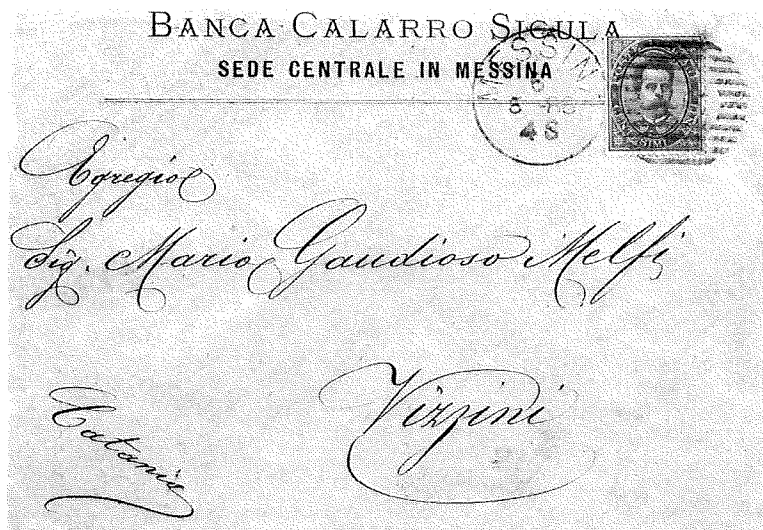 BANCA CALARRO SICULA
SEDE CENTRALE IN MESSINA
MESSINA
6
8
48
CENTESIMI
Egregio
Sig. Mario Gaudioso Melfi
Vizzini
Catania